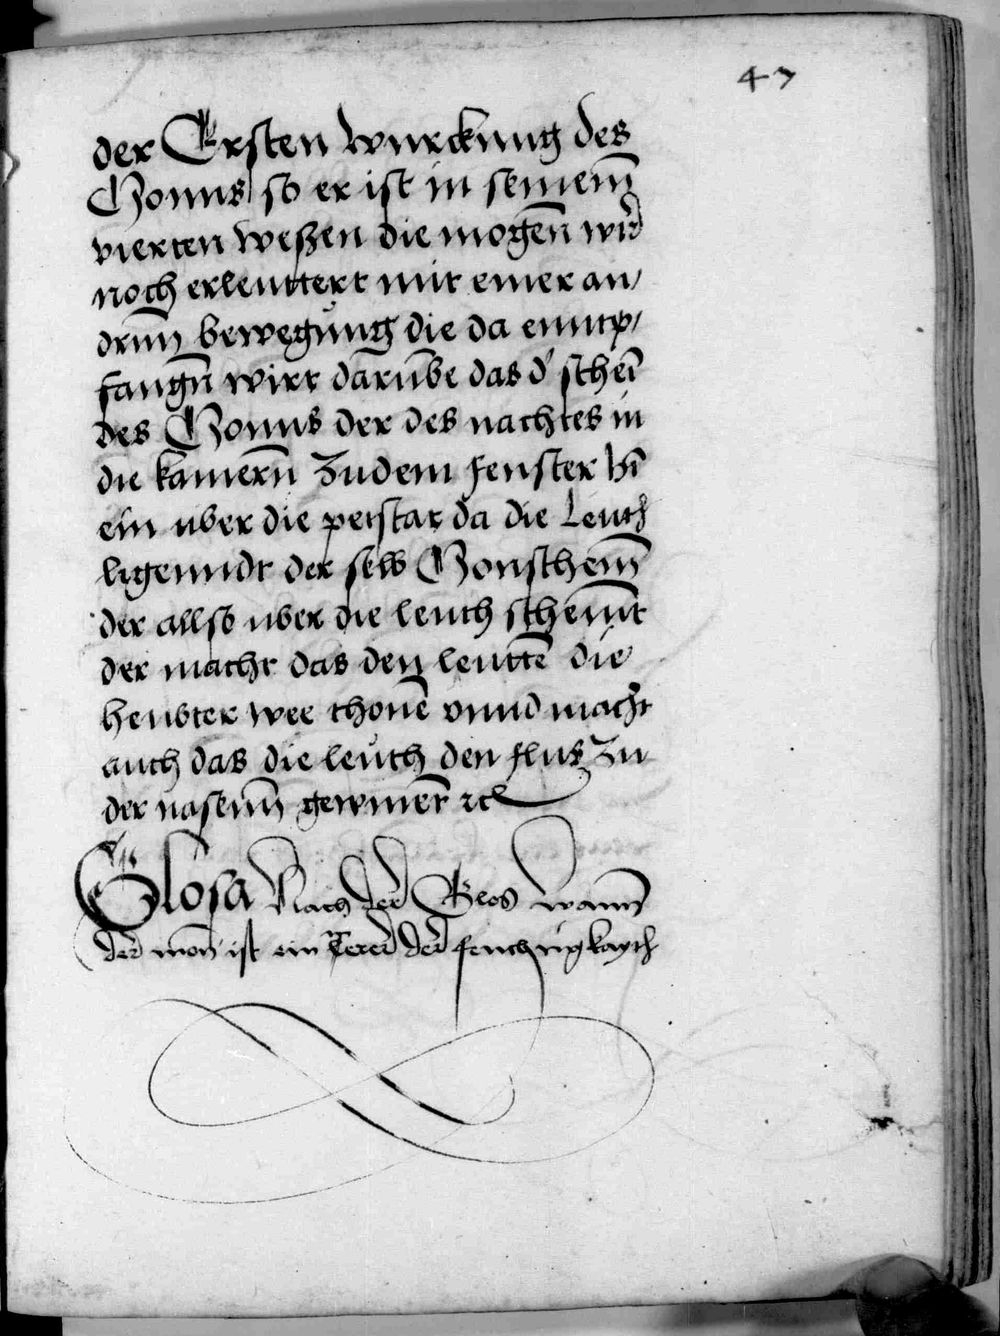 47
der Ersten wurckung des
Monns so er ist in seinem̄
vierten weßen die mogen̄ wird
noch erleuttert mit einer an/
drm̄ bewegung die da enntp/
fangn̄ wirt darūbe das d' schei̅
des Monns der des nachtes in
die kamern̄ zu dem fenster hi̅
ein uber die petstat da die Leuth
ligenndt der selb Monschein̄
der allso uber die leuth scheint̄
der macht das den leuttē die
heubter wee thonē vnnd macht
auch das die leuth den fluß zu
der nasenn̄ gewinen̄t ꝛc
Glosa Nach der Glos wann̄
der mon̄ ist ein der feuchtigkayth